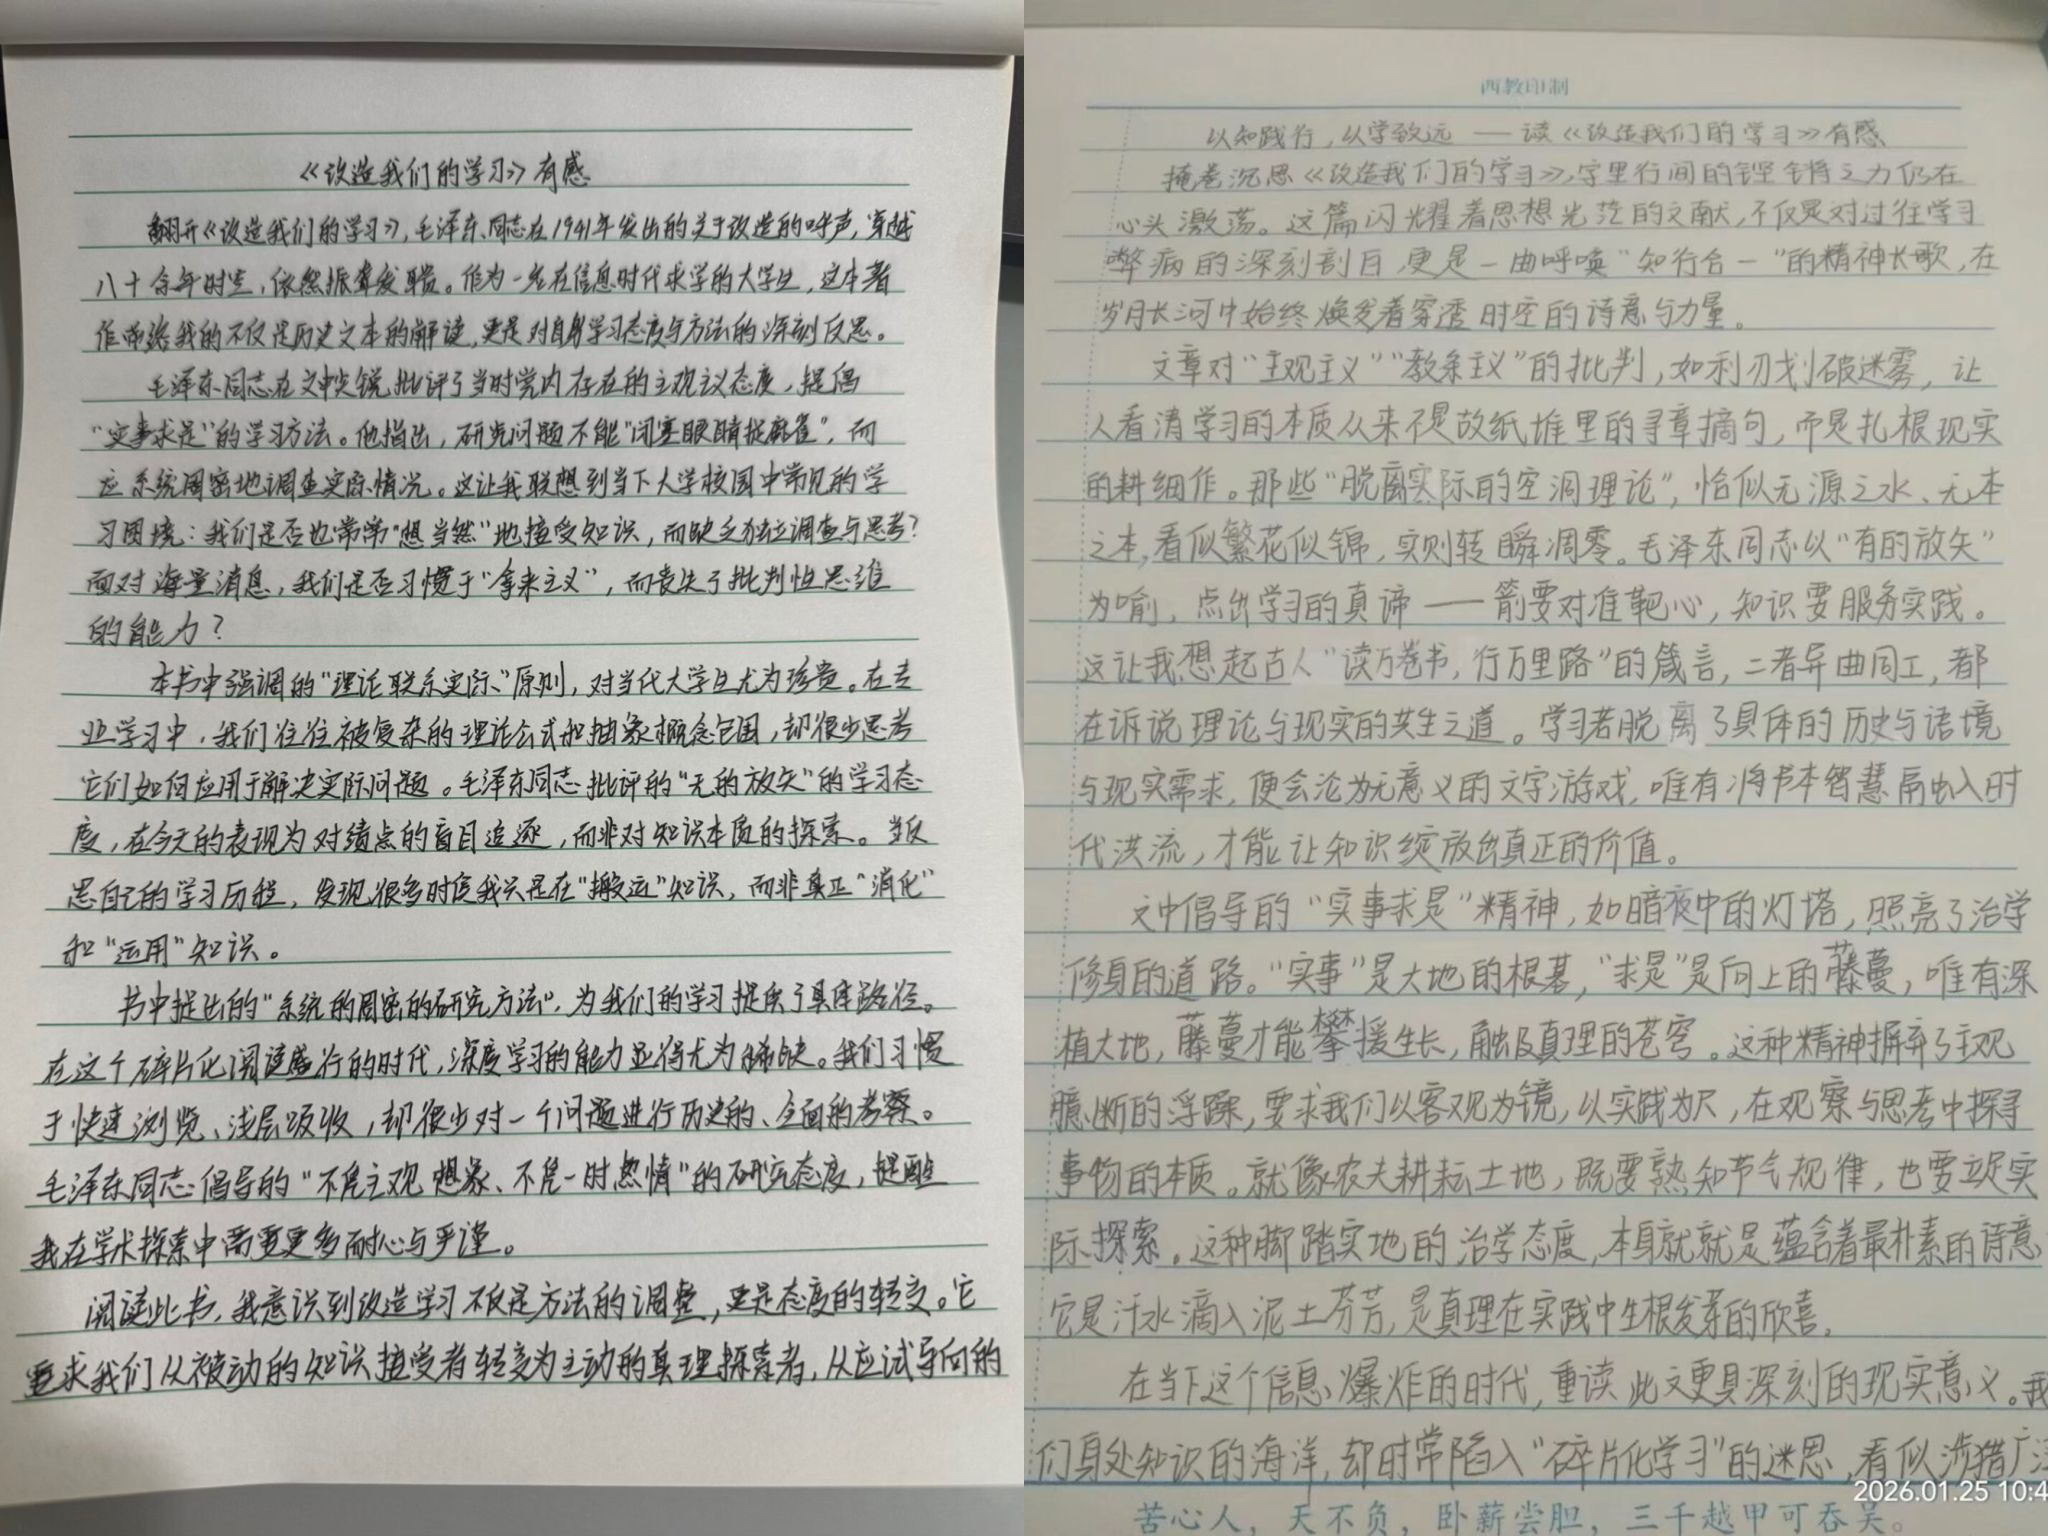 《改造我们的学习》有感
翻开《改造我们的学习》，毛泽东同志在1941年发出的关于改造的呼声，穿越
八十余年时空，依然振聋发聩。作为一名在信息时代求学的大学生，这本著
作带给我的不仅是历史文本的解读，更是对自身学习态度与方法的深刻反思。
毛泽东同志在文中尖锐批评了当时党内存在的主观主义态度，提倡
“实事求是”的学习方法。他指出，研究问题不能“闭塞眼睛捉麻雀”，而
应系统周密地调查实际情况。这让我联想到当下大学校园中常见的学
习困境：我们是否也常常“想当然”地接受知识，而缺乏独立调查与思考？
面对海量消息，我们是否习惯于“拿来主义”，而丧失了批判性思维
的能力？
本书中强调的“理论联系实际”原则，对当代大学生尤为珍贵。在专
业学习中，我们往往被复杂的理论公式和抽象概念包围，却很少思考
它们如何应用于解决实际问题。毛泽东同志批评的“无的放矢”的学习态
度，在今天的表现为对绩点的盲目追逐，而非对知识本质的探索。当反
思自己的学习历程，发现很多时侯我只是在“搬运”知识，而非真正“消化”
和“运用”知识。
书中提出的“系统的周密的研究方法”，为我们的学习提供了具体路径。
在这个碎片化阅读盛行的时代，深度学习的能力显得尤为稀缺。我们习惯
于快速浏览、浅层吸收，却很少对一个问题进行历史的、全面的考察。
毛泽东同志倡导的“不凭主观想象、不凭一时热情”的研究态度，提醒
我在学术探索中需要更多耐心与严谨。
阅读此书，我意识到改造学习不仅是方法的调整，更是态度的转变。它
要求我们从被动的知识接受者转变为主动的真理探索者，从应试导向的
西教印制
以知践行，以学致远 —— 读《改造我们的学习》有感
掩卷沉思《改造我们的学习》，字里行间的铿锵之力仍在
心头激荡。这篇闪耀着思想光茫的文献，不仅是对过往学习
弊病的深刻剖白，更是一曲呼唤“知行合一”的精神长歌，在
岁月长河中始终焕发着穿透时空的诗意与力量。
文章对“主观主义”“教条主义”的批判，如利刃划破迷雾，让
人看清学习的本质从来不是故纸堆里的寻章摘句，而是扎根现实
的耕细作。那些“脱离实际的空洞理论”，恰似无源之水、无本
之本，看似繁花似锦，实则转瞬凋零。毛泽东同志以“有的放矢”
为喻，点出学习的真谛 —— 箭要对准靶心，知识要服务实践。
这让我想起古人“读万卷书，行万里路”的箴言，二者异曲同工，都
在诉说理论与现实的共生之道。学习若脱离了具体的历史与语境
与现实需求，便会沦为无意义的文字游戏，唯有将书本智慧融入时
代洪流，才能让知识绽放出真正的价值。
文中倡导的“实事求是”精神，如暗夜中的灯塔，照亮了治学
修身的道路。“实事”是大地的根基，“求是”是向上的藤蔓，唯有深
植大地，藤蔓才能攀援生长，触及真理的苍穹。这种精神摒弃了主观
臆断的浮躁，要求我们以客观为镜，以实践为尺，在观察与思考中探寻
事物的本质。就像农夫耕耘土地，既要熟知节气规律，也要立足实
际探索。这种脚踏实地的治学态度，本身就就是蕴含着最朴素的诗意
它是汗水滴入泥土芬芳，是真理在实践中生根发芽的欣喜。
在当下这个信息爆炸的时代，重读此文更具深刻的现实意义。我
们身处知识的海洋，却时常陷入“碎片化学习”的迷思，看似涉猎广
2026.01.25 10:4
苦心人，天不负，卧薪尝胆，三千越甲可吞吴。